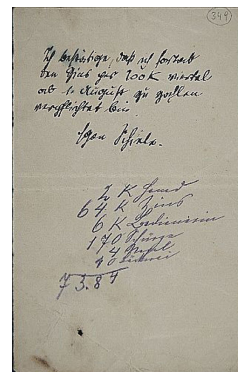 344
Ich bestätige, daß ich fortab
den Zins per 200K viertel
ab 1. August zu zahlen
verpflichtet bin.
Egon Schiele.
2 K Hemd
64 K Zins
6 K Bedienerin
170 Schürze
14
40
73.84